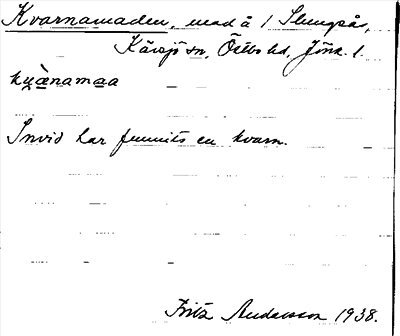 Kvarnamaden, mad å 1 Slungsås,
Kävsjö sn, Östbo hd, Jönk. l.
kṷànamaa
Invid har funnits en kvarn.
Fritz Andersson 1938.